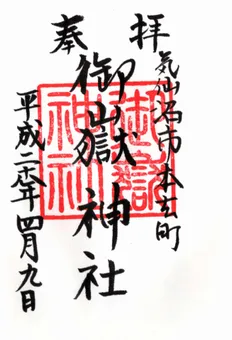 奉拝
気仙沼市本吉町
御嶽神社
平成二十六年四月九日
御嶽
神社